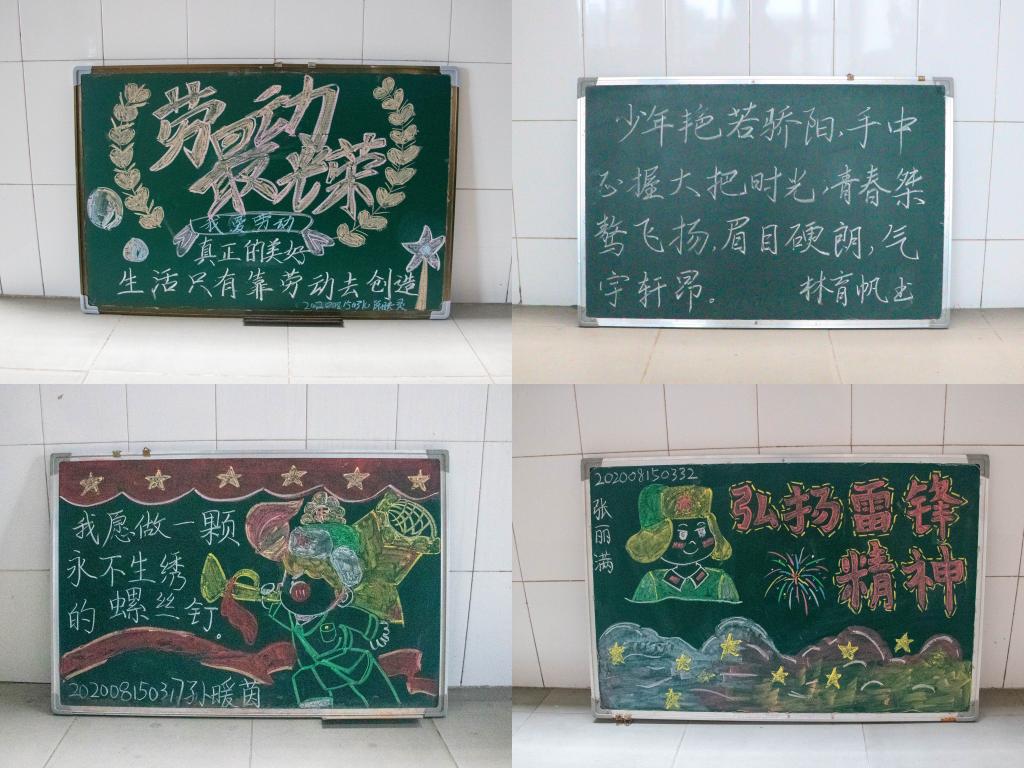 劳动
最光荣
我爱劳动
真正的美好
生活只有靠劳动去创造
少年艳若骄阳,手中
正握大把时光,青春桀
骜飞扬,眉目硬朗,气
宇轩昂。 林育帆书
我愿做一颗
永不生绣
的螺丝钉。
202008150317孙暖茵
202008150332
张丽满
弘扬雷锋
精神